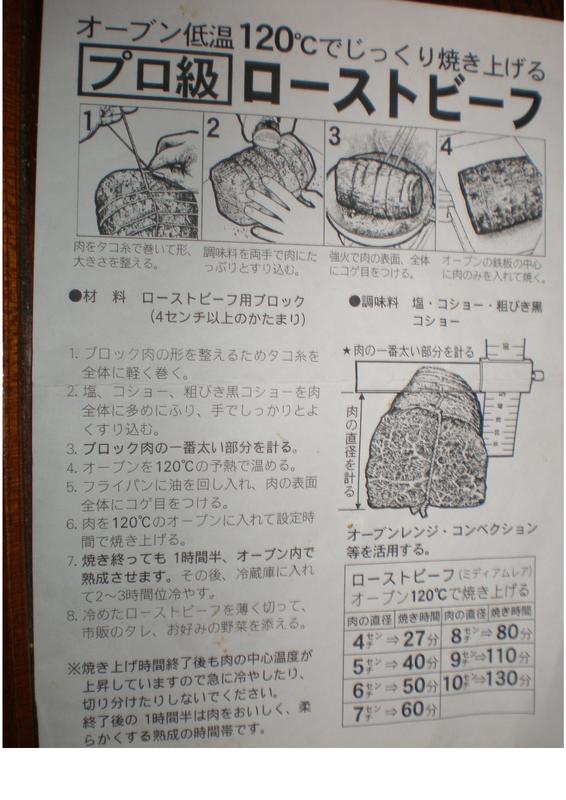 オーブン低温120℃でじっくり焼き上げる
プロ級 ローストビーフ
1
2
3
4
肉をタコ糸で巻いて形、
大きさを整える。
調味料を両手で肉にた
っぷりとすり込む。
強火で肉の表面、全体
にコゲ目をつける。
オーブンの鉄板の中心
に肉のみを入れて焼く。
●材 料 ローストビーフ用ブロック
(4センチ以上のかたまり)
●調味料 塩・コショー・粗びき黒
コショー
1. ブロック肉の形を整えるためタコ糸を
全体に軽く巻く。
2. 塩、コショー、粗びき黒コショーを肉
全体に多めにふり、手でしっかりとよ
くすり込む。
3. ブロック肉の一番太い部分を計る。
4. オーブンを120℃の予熱で温める。
5. フライパンに油を回し入れ、肉の表面
全体にコゲ目をつける。
6. 肉を120℃のオーブンに入れて設定時
間で焼き上げる。
7. 焼き終っても 1時間半、オーブン内で
熟成させます。その後、冷蔵庫に入れ
て2〜3時間位冷やす。
8. 冷めたローストビーフを薄く切って、
市販のタレ、お好みの野菜を添える。
※焼き上げ時間終了後も肉の中心温度が
上昇していますので急に冷やしたり、
切り分けたりしないでください。
終了後の 1時間半は肉をおいしく、柔
らかくする熟成の時間帯です。
★肉の一番太い部分を計る
肉の直径を計る
オーブンレンジ・コンベクション
等を活用する。
ローストビーフ(ミディアムレア)
オーブン120℃で焼き上げる
肉の直径 焼き時間 肉の直径 焼き時間
4センチ⇒27分 8センチ⇒80分
5センチ⇒40分 9センチ⇒110分
6センチ⇒50分 10センチ⇒130分
7センチ⇒60分